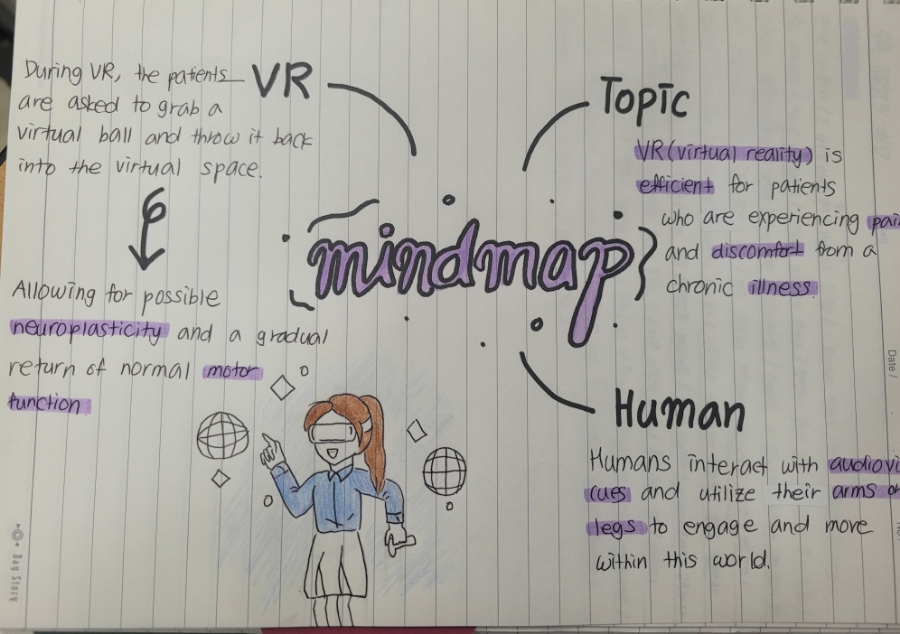 During VR, the patients
are asked to grab a
virtual ball and throw it back
into the virtual space.
VR
Allowing for possible
neuroplasticity and a gradual
return of normal motor
function
mindmap
Topic
VR(virtual reality) is
efficient for patients
who are experiencing
and discomfort from a
chronic illness.
Human
Humans interact with
cues and utilize their arms
legs to engage and move
within this world.
Date /
Day Story